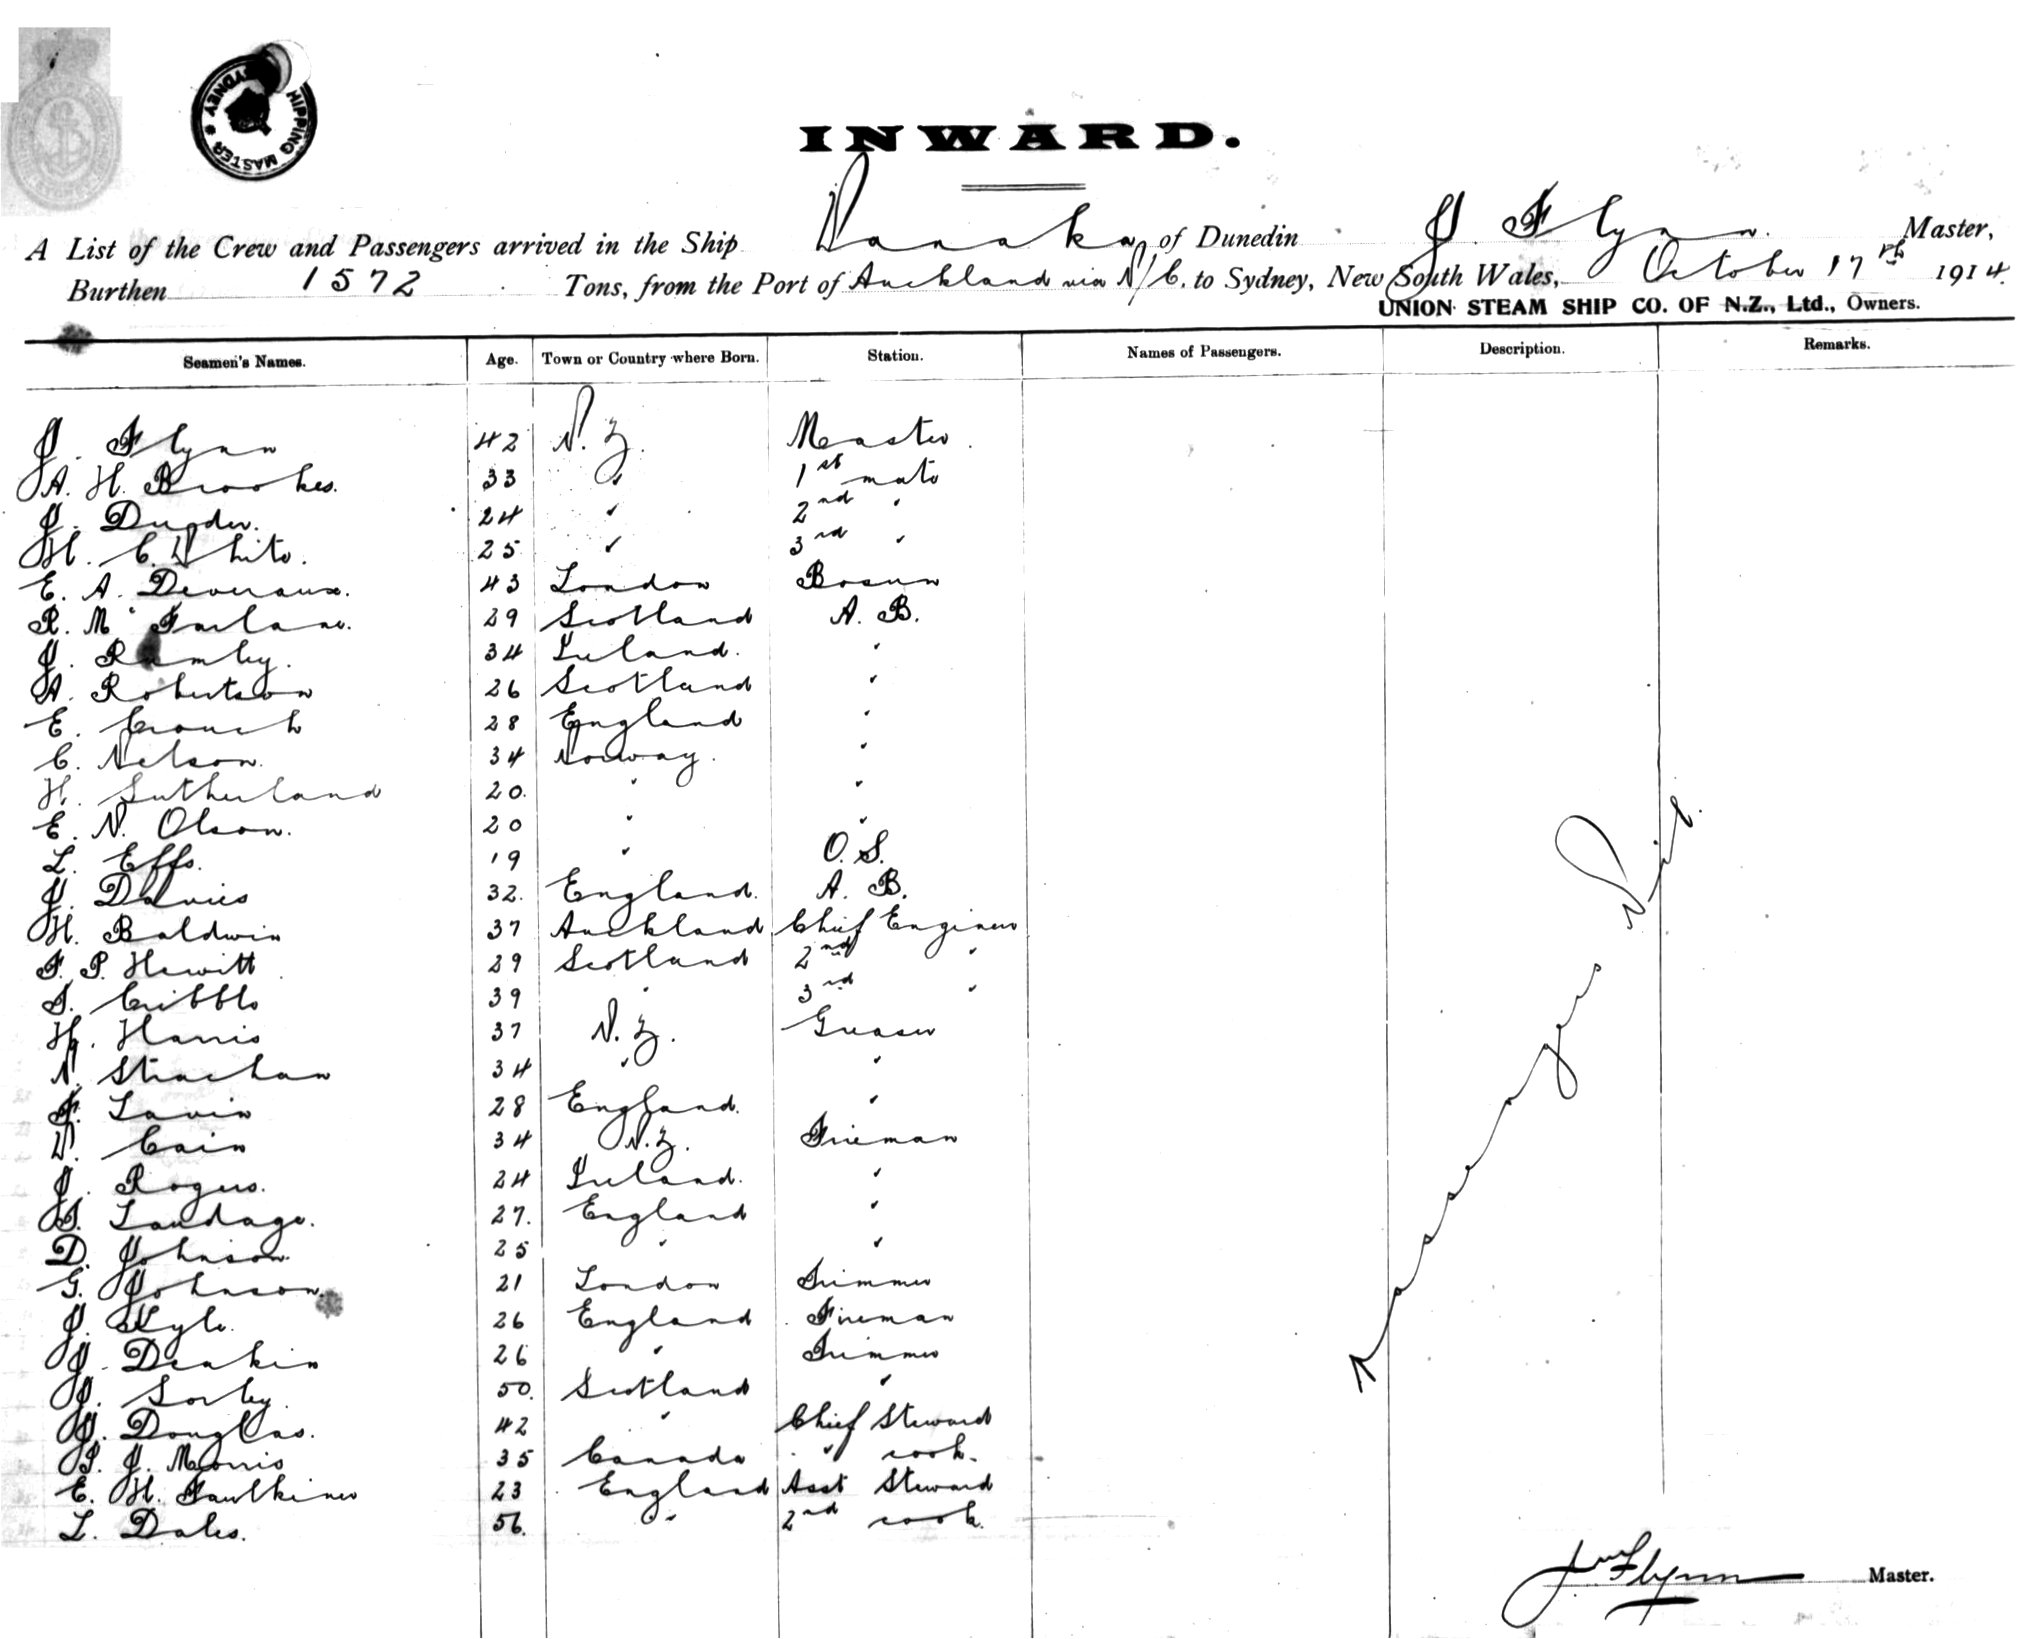 SHIPPING MASTER * SYDNEY *
INWARD.
A List of the Crew and Passengers arrived in the Ship Wanaka of Dunedin J. Flynn. Master,
Burthen 1572 Tons, from the Port of Auckland via N/C. to Sydney, New South Wales, October 17th 1914.
UNION STEAM SHIP CO. OF N.Z., Ltd., Owners.
Seamen's Names. Age. Town or Country where Born. Station. Names of Passengers. Description. Remarks.
J. Flynn 42 N.Z. Master.
A. H. Brookes. 33 " 1st mate
J. 24 " 2nd "
H. C. White. 25 " 3rd "
E. A. Deveraux. 43 London Bosun
R. Mc Farlane. 29 Scotland A. B.
J. Rumley. 34 Ireland. "
A. Robertson 26 Scotland "
E. Crouch 28 England "
C. Nelson. 34 Norway. "
H. Sutherland 20. " "
E. N. Olson. 20 " "
L. Effs. 19 " O. S.
J. Davies 32. England. A. B.
H. Baldwin 37 Auckland Chief Engineer
F. P. Hewitt 29 Scotland 2nd "
S. Cribble 39 " 3rd "
H. Harris 37 N.Z. Greaser
N. Strachan 34 " "
F. Lavin 28 England. "
W. Cain 34 N.Z. Fireman
J. Rogers. 24 Ireland. "
S. 27. England "
D. Johnson 25 " "
G. Johnson. 21 London Trimmer
J. Kyle. 26 England Fireman
J. Deakin 26 " Trimmer
J. Sorley. 50. Scotland "
J. Douglas. 42 " Chief Steward
P. J. Morris 35 Canada " cook.
E. H. Faulkiner 23 England Asst Steward
L. Dales. 56. " 2nd cook.
Passengers Nil.
Jn Flynn Master.